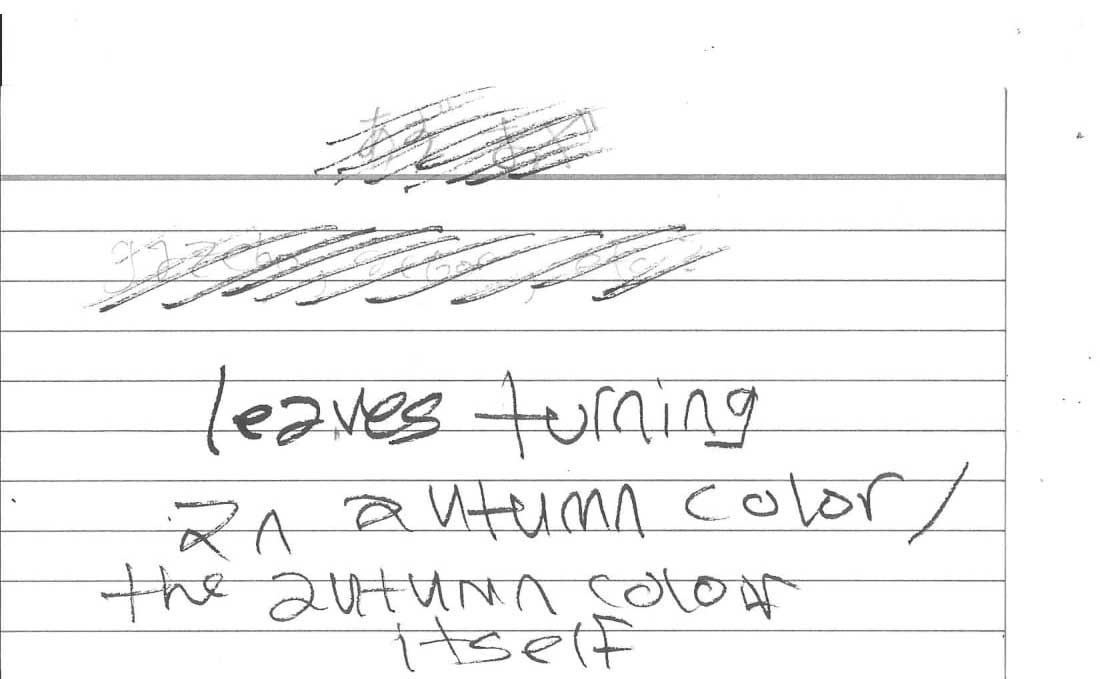 leaves turning
an autumn color/
the autumn color
itself